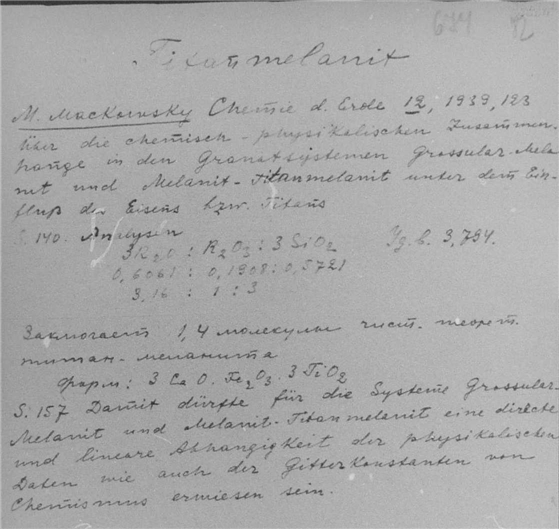 674 92
Titanmelanit
M. Mackowsky Chemie d. Erde 12, 1939, 123
Über die chemisch-physikalischen Zusammen-
hänge in den Granatsystemen Grossular-Mela
nit und Melanit-Titanmelanit unter dem Ein-
fluß des Eisens bzw. Titans
S. 140. Analysen
3R2O : R2O3 : 3SiO2 Уд. в. 3,794.
0,6061 : 0,1908 : 0,5721
3,16 : 1 : 3
Заключает 1,4 молекулы чист. теорет.
титан-меланита
Форм: 3CaO. Fe2O3. 3TiO2
S. 157 Damit dürfte für die Systeme Grossular-
Melanit und Melanit-Titanmelanit eine directe
und lineare Abhängigkeit der physikalischen
Daten wie auch der Gitterkonstanten von
Chemismus erwiesen sein.